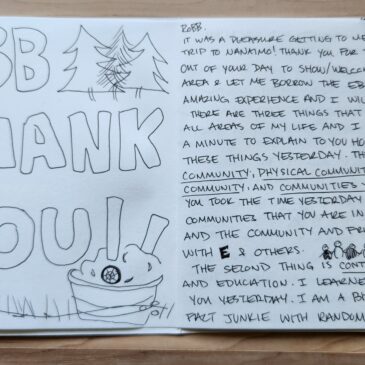 BB
HANK
OU!!
ROBB,
IT WAS A PLEASURE GETTING TO ME
TRIP TO NANAIMO! THANK YOU FOR T
OUT OF YOUR DAY TO SHOW/WELCOM
AREA & LET ME BORROW THE EB
AMAZING EXPERIENCE AND I WIL
THERE ARE THREE THINGS THAT
ALL AREAS OF MY LIFE AND I
A MINUTE TO EXPLAIN TO YOU HO
THESE THINGS YESTERDAY. TH
COMMUNITY, PHYSICAL COMMUNIT
COMMUNITY, AND COMMUNITIES
YOU TOOK THE TIME YESTERDAY
COMMUNITIES THAT YOU ARE IN
AND THE COMMUNITY AND FR
WITH E & OTHERS.
THE SECOND THING IS CONT
AND EDUCATION. I LEARNE
YOU YESTERDAY. I AM A B
FACT JUNKIE WITH RANDOM